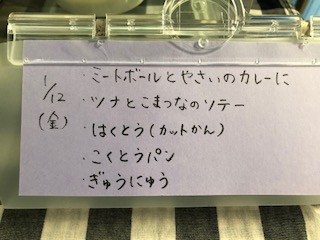 1/12
(金)
・ミートボールとやさいのカレーに
・ツナとこまつなのソテー
・はくとう(カットかん)
・こくとうパン
・ぎゅうにゅう